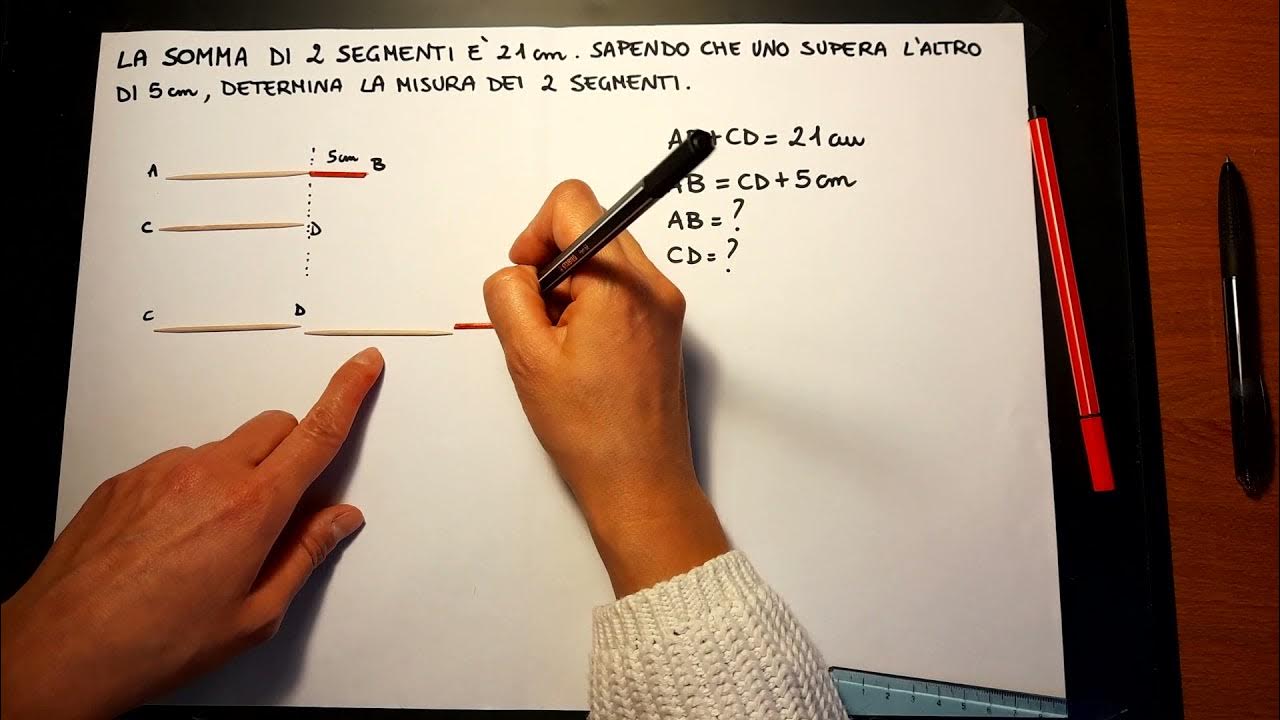 LA SOMMA DI 2 SEGMENTI È 21 cm. SAPENDO CHE UNO SUPERA L'ALTRO
DI 5 cm, DETERMINA LA MISURA DEI 2 SEGMENTI.
A 5 cm B
C D
C D
+CD = 21 cm
AB = CD + 5 cm
AB = ?
CD = ?
1 2 3 4 5 6 7